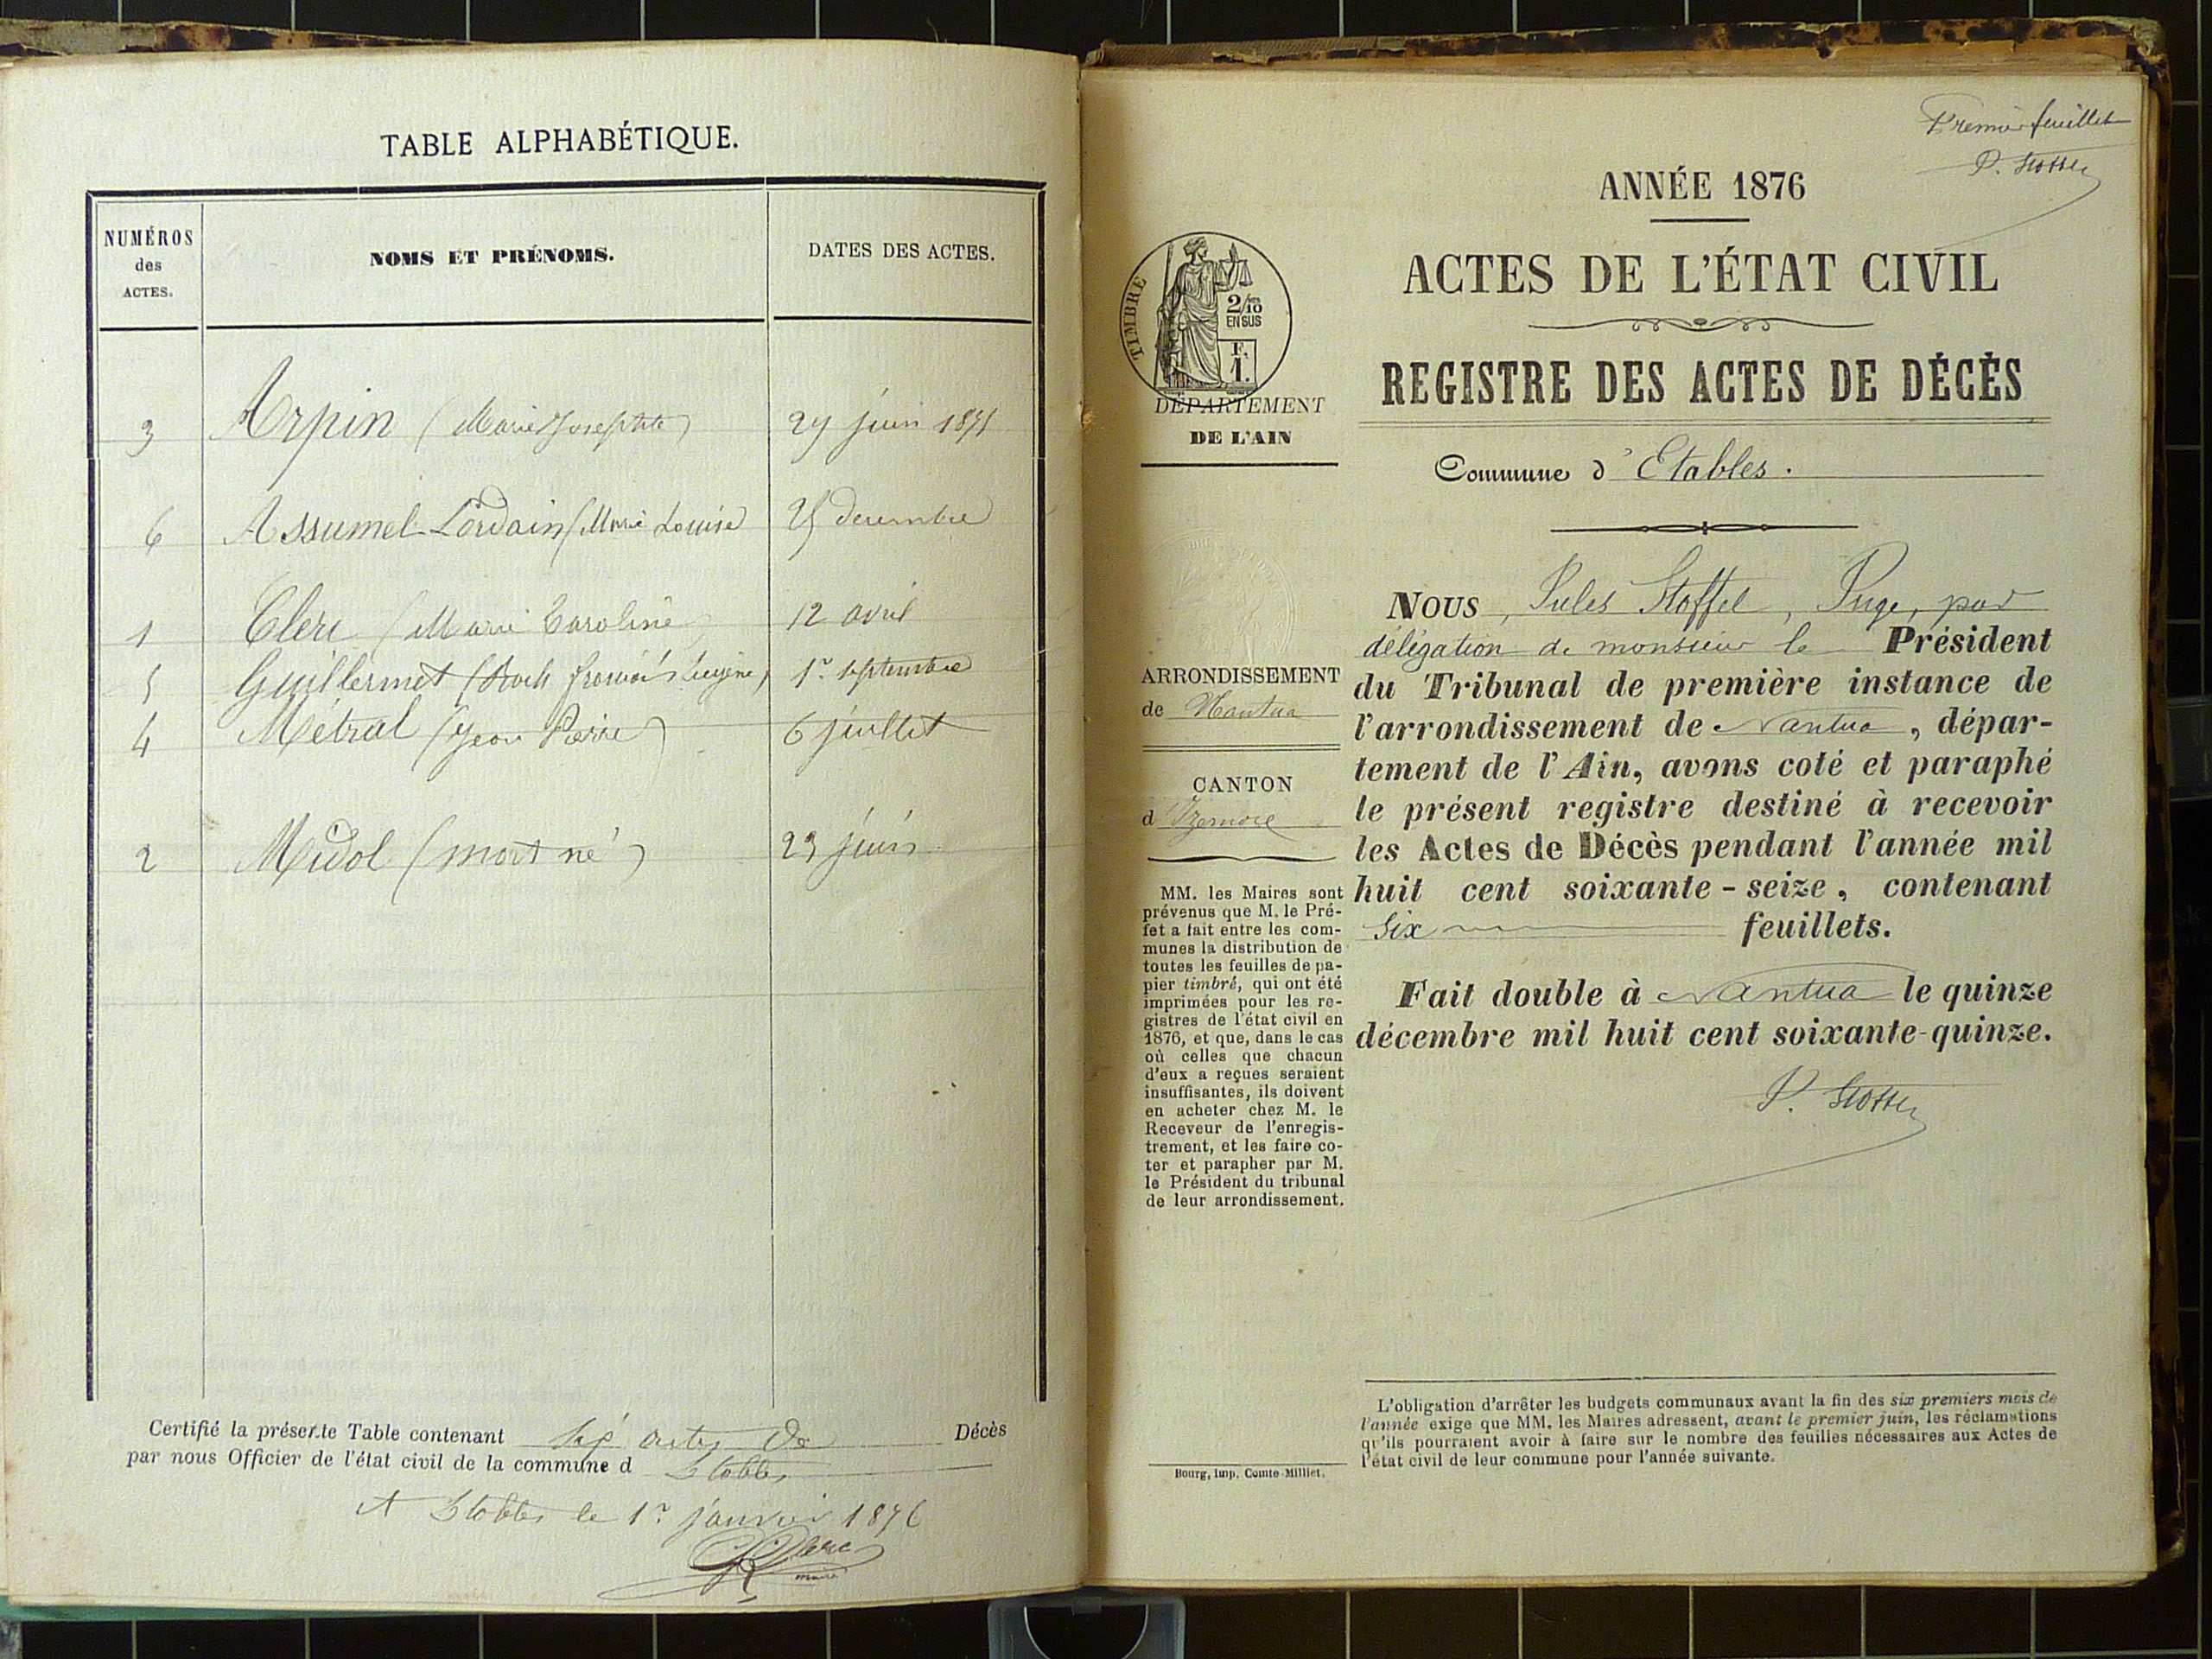 TABLE ALPHABÉTIQUE.
NUMÉROS
des
ACTES.
NOMS ET PRÉNOMS.
DATES DES ACTES.
3 Arpin (Marie Josephte) 29 juin 1875
6 Assumel-Lordain (Marie Louise) 25 decembre
1 Clerc (Marie Caroline 12 avril
5 Guillermet ( françois Eugène) 1er septembre
4 Métral (Jean Pierre) 6 juillet
2 Midol (mort né) 23 juin
Certifié la présente Table contenant Six actes de Décès
par nous Officier de l'état civil de la commune d Etables
A Etables le 1er janvier 1876
Clerc
maire
Premier feuillet
ANNÉE 1876
ACTES DE L'ÉTAT CIVIL
REGISTRE DES ACTES DE DÉCÈS
Commune d'Etables.
TIMBRE
2/10
EN SUS
F.
1.
DÉPARTEMENT
DE L'AIN
ARRONDISSEMENT
de Nantua
CANTON
d'Izernore
MM. les Maires sont
prévenus que M. le Pré-
fet a fait entre les com-
munes la distribution de
toutes les feuilles de pa-
pier timbré, qui ont été
imprimées pour les re-
gistres de l'état civil en
1876, et que, dans le cas
où celles que chacun
d'eux a reçues seraient
insuffisantes, ils doivent
en acheter chez M. le
Receveur de l'enregis-
trement, et les faire co-
ter et parapher par M.
le Président du tribunal
de leur arrondissement.
Bourg, Imp. Comte-Milliet.
NOUS, Jules Stoffel, Juge, par
délégation de monsieur le Président
du Tribunal de première instance de
l'arrondissement de Nantua, dépar-
tement de l'Ain, avons coté et paraphé
le présent registre destiné à recevoir
les Actes de Décès pendant l'année mil
huit cent soixante-seize, contenant
six feuillets.
Fait double à Nantua le quinze
décembre mil huit cent soixante-quinze.
L'obligation d'arrêter les budgets communaux avant la fin des six premiers mois de
l'année exige que MM. les Maires adressent, avant le premier juin, les réclamations
qu'ils pourraient avoir à faire sur le nombre des feuilles nécessaires aux Actes de
l'état civil de leur commune pour l'année suivante.